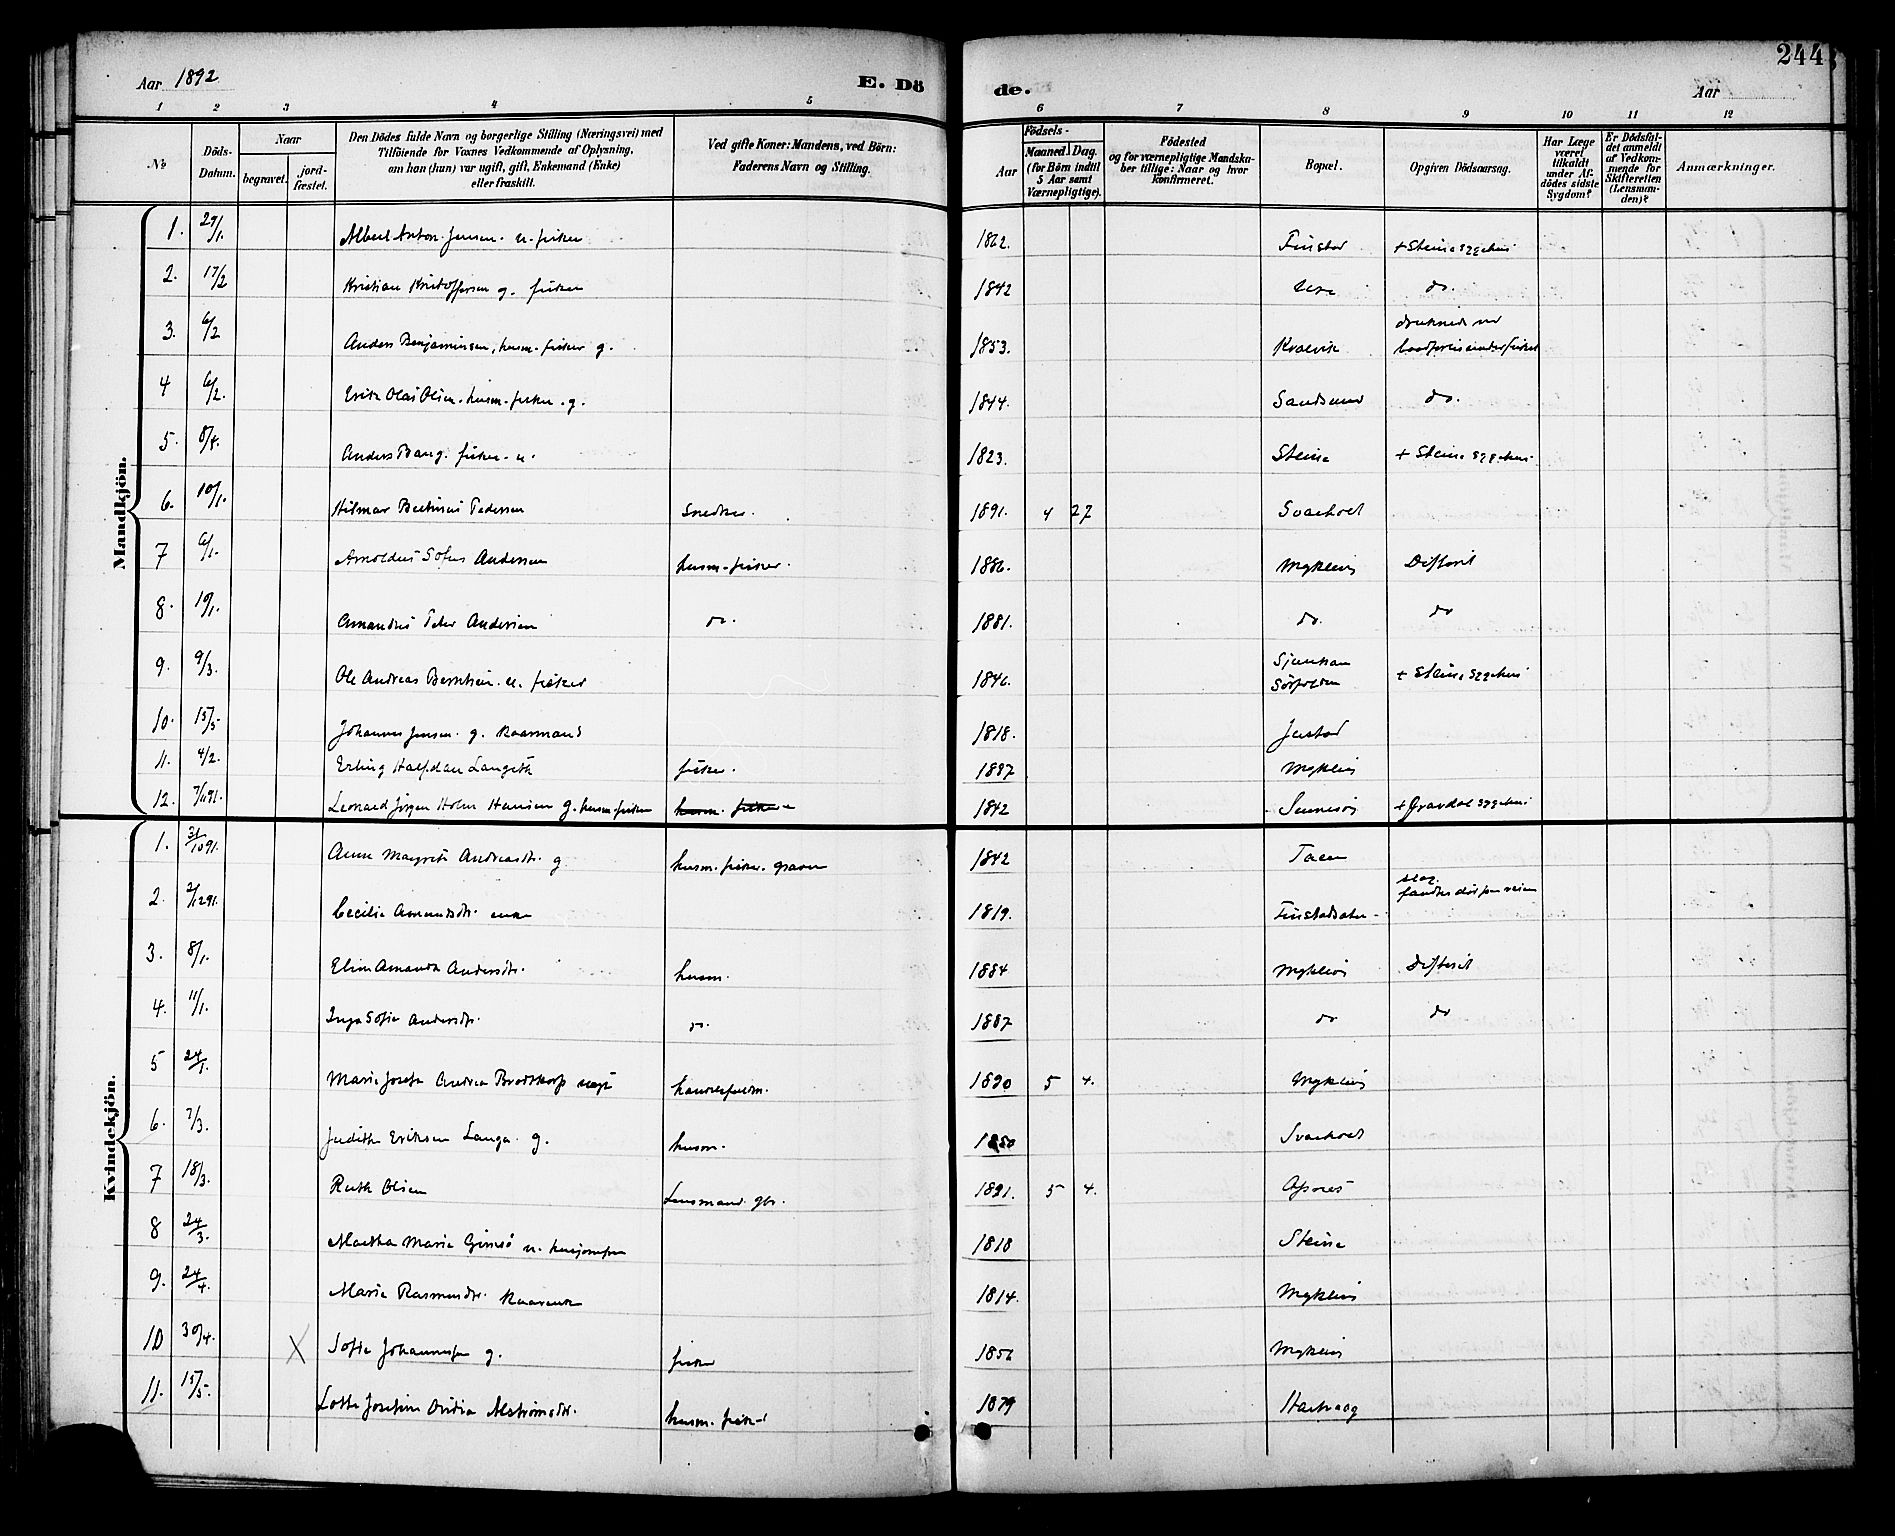 244
Aar 1892
E. Dö
de.
Aar
1 2 3 4 5 6 7 8 9 10 11 12
No
Döds-
Datum.
Naar
begravet.
jord-
fæstet.
Den Dödes fulde Navn og borgerlige Stilling (Næringsvei) med
Tilföiende for Voxnes Vedkommende af Oplysning,
om han (hun) var ugift, gift, Enkemand (Enke)
eller fraskilt.
Ved gifte Koner: Mandens, ved Börn:
Faderens Navn og Stilling.
Aar
Födsels-
Maaned. Dag.
(for Börn indtil
5 Aar samt
Værnepligtige).
Födested
og for værnepligtige Mandska-
ber tillige: Naar og hvor
konfirmeret.
Bopæl.
Opgiven Dödsaarsag.
Har Læge
været
tilkaldt
under Af-
dödes sidste
Sygdom?
Er Dödsfal-
det anmeldt
af Vedkom-
mende for
Skifteretten
(Lensman-
den)?
Anmærkninger.
Mandkjön.
1. 29/1. Albert Anton Jensen. u. fisker 1862. Finstad + Steine sygehus
2. 17/2 Kristian Kristoffersen g. fisker 1842 Ure do.
3. 6/2 Anders Benjaminsen, husm. fisker g. 1853. Kvalvik druknede ved
baadforlis under fisket
4 6/2. Erik Olai Olsen. husm. fisker. g. 1844. Sandsund do.
5. 8/4. Anders Bang. fisker. u. 1823. Steine + Steine sygehus.
6. 10/1. Hilmar Pedersen Snedker. 1891. 4 27 Svarholt
7 6/1. Arnoldus Sofus Andersen husm. fisker. 1886. Myklevis Difterit
8. 19/1. Amandus Peter Andersen do. 1881. do. do
9. 9/3. Ole Andreas Berntsen. u. fisker 1846. Sørfolden + Steine sygehus
10. 15/5. Johannes Jensen. g. Kaarmand 1818. Justad
11. 4/2. Erling Halfdan Langeth fisker. 1887 Myklevis
12. 7/11 91. Leonard Jörgen Holm Hansen g. husm. fisker husm. fisker 1842 Sennesvig + Gravdal sygehus
Kvindekjön.
1. 31/10 91. Anne Margrete Andreasdtr. g husm. fisker. 1842 Taen
2. 2/12 91. Cecilia Amundsdtr. enke 1819. slag.
fandtes död paa veien
3. 8/1. Elen Amanda Andersdtr. husm. 1884 Myklevis Difterit
4. 11/1. Inga Sofie Andersdtr. do. 1887 do do
5 24/1. Marie Josefa Andrea Brodtkorb handelsfuldm. 1890 5 4. Myklevis
6. 7/3. Judith Eriksen Lange. g. husm. 1850 Svarholt
7 18/3. Ruth Olsen Lensmand. 1891. 5 4.
8 24/3. Martha Maria Gimsö u. 1818 Steine
9. 24/4. Maria Rasmusdtr. Kaarenke 1814. Myklevis
10 30/4. X Sofie g. fisker 1856 Myklevis
11. 15/5. Lotte Josefine husm. fisker 1879